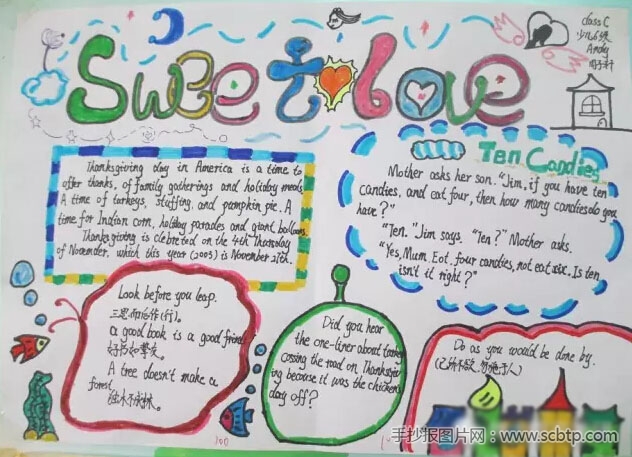 Sweet love
class C
少儿6级
Andy
Thanksgiving day in America is a time to
offer thanks, of family gatherings and holiday meals.
A time of turkeys, stuffing, and pumpkin pie. A
time for Indian corn, holiday parades and giant balloons.
Thanksgiving is clebreted on the 4th Thursday
of November, which this year (2003) is November 27th.
Ten Candies
Mother asks her son. "Jim, if you have ten
candies. and eat four, then how many candies do you
have?"
"Ten." Jim says. "Ten?" Mother asks.
"Yes, Mum. Eat four candies, not eat six. Is ten
isn't it right?"
Look before you leap.
三思而后作(行).
a good book is a good friend
好书如挚友.
A tree doesn't make a
forest.
独木不成林.
Did you hear
the one-liner about
cossing the road on Thanksgiv
ing because it was the chickens
day off?
Do as you would be done by.
(己所不欲, 勿施于人)
100
手抄报图片网：www.scbtp.com